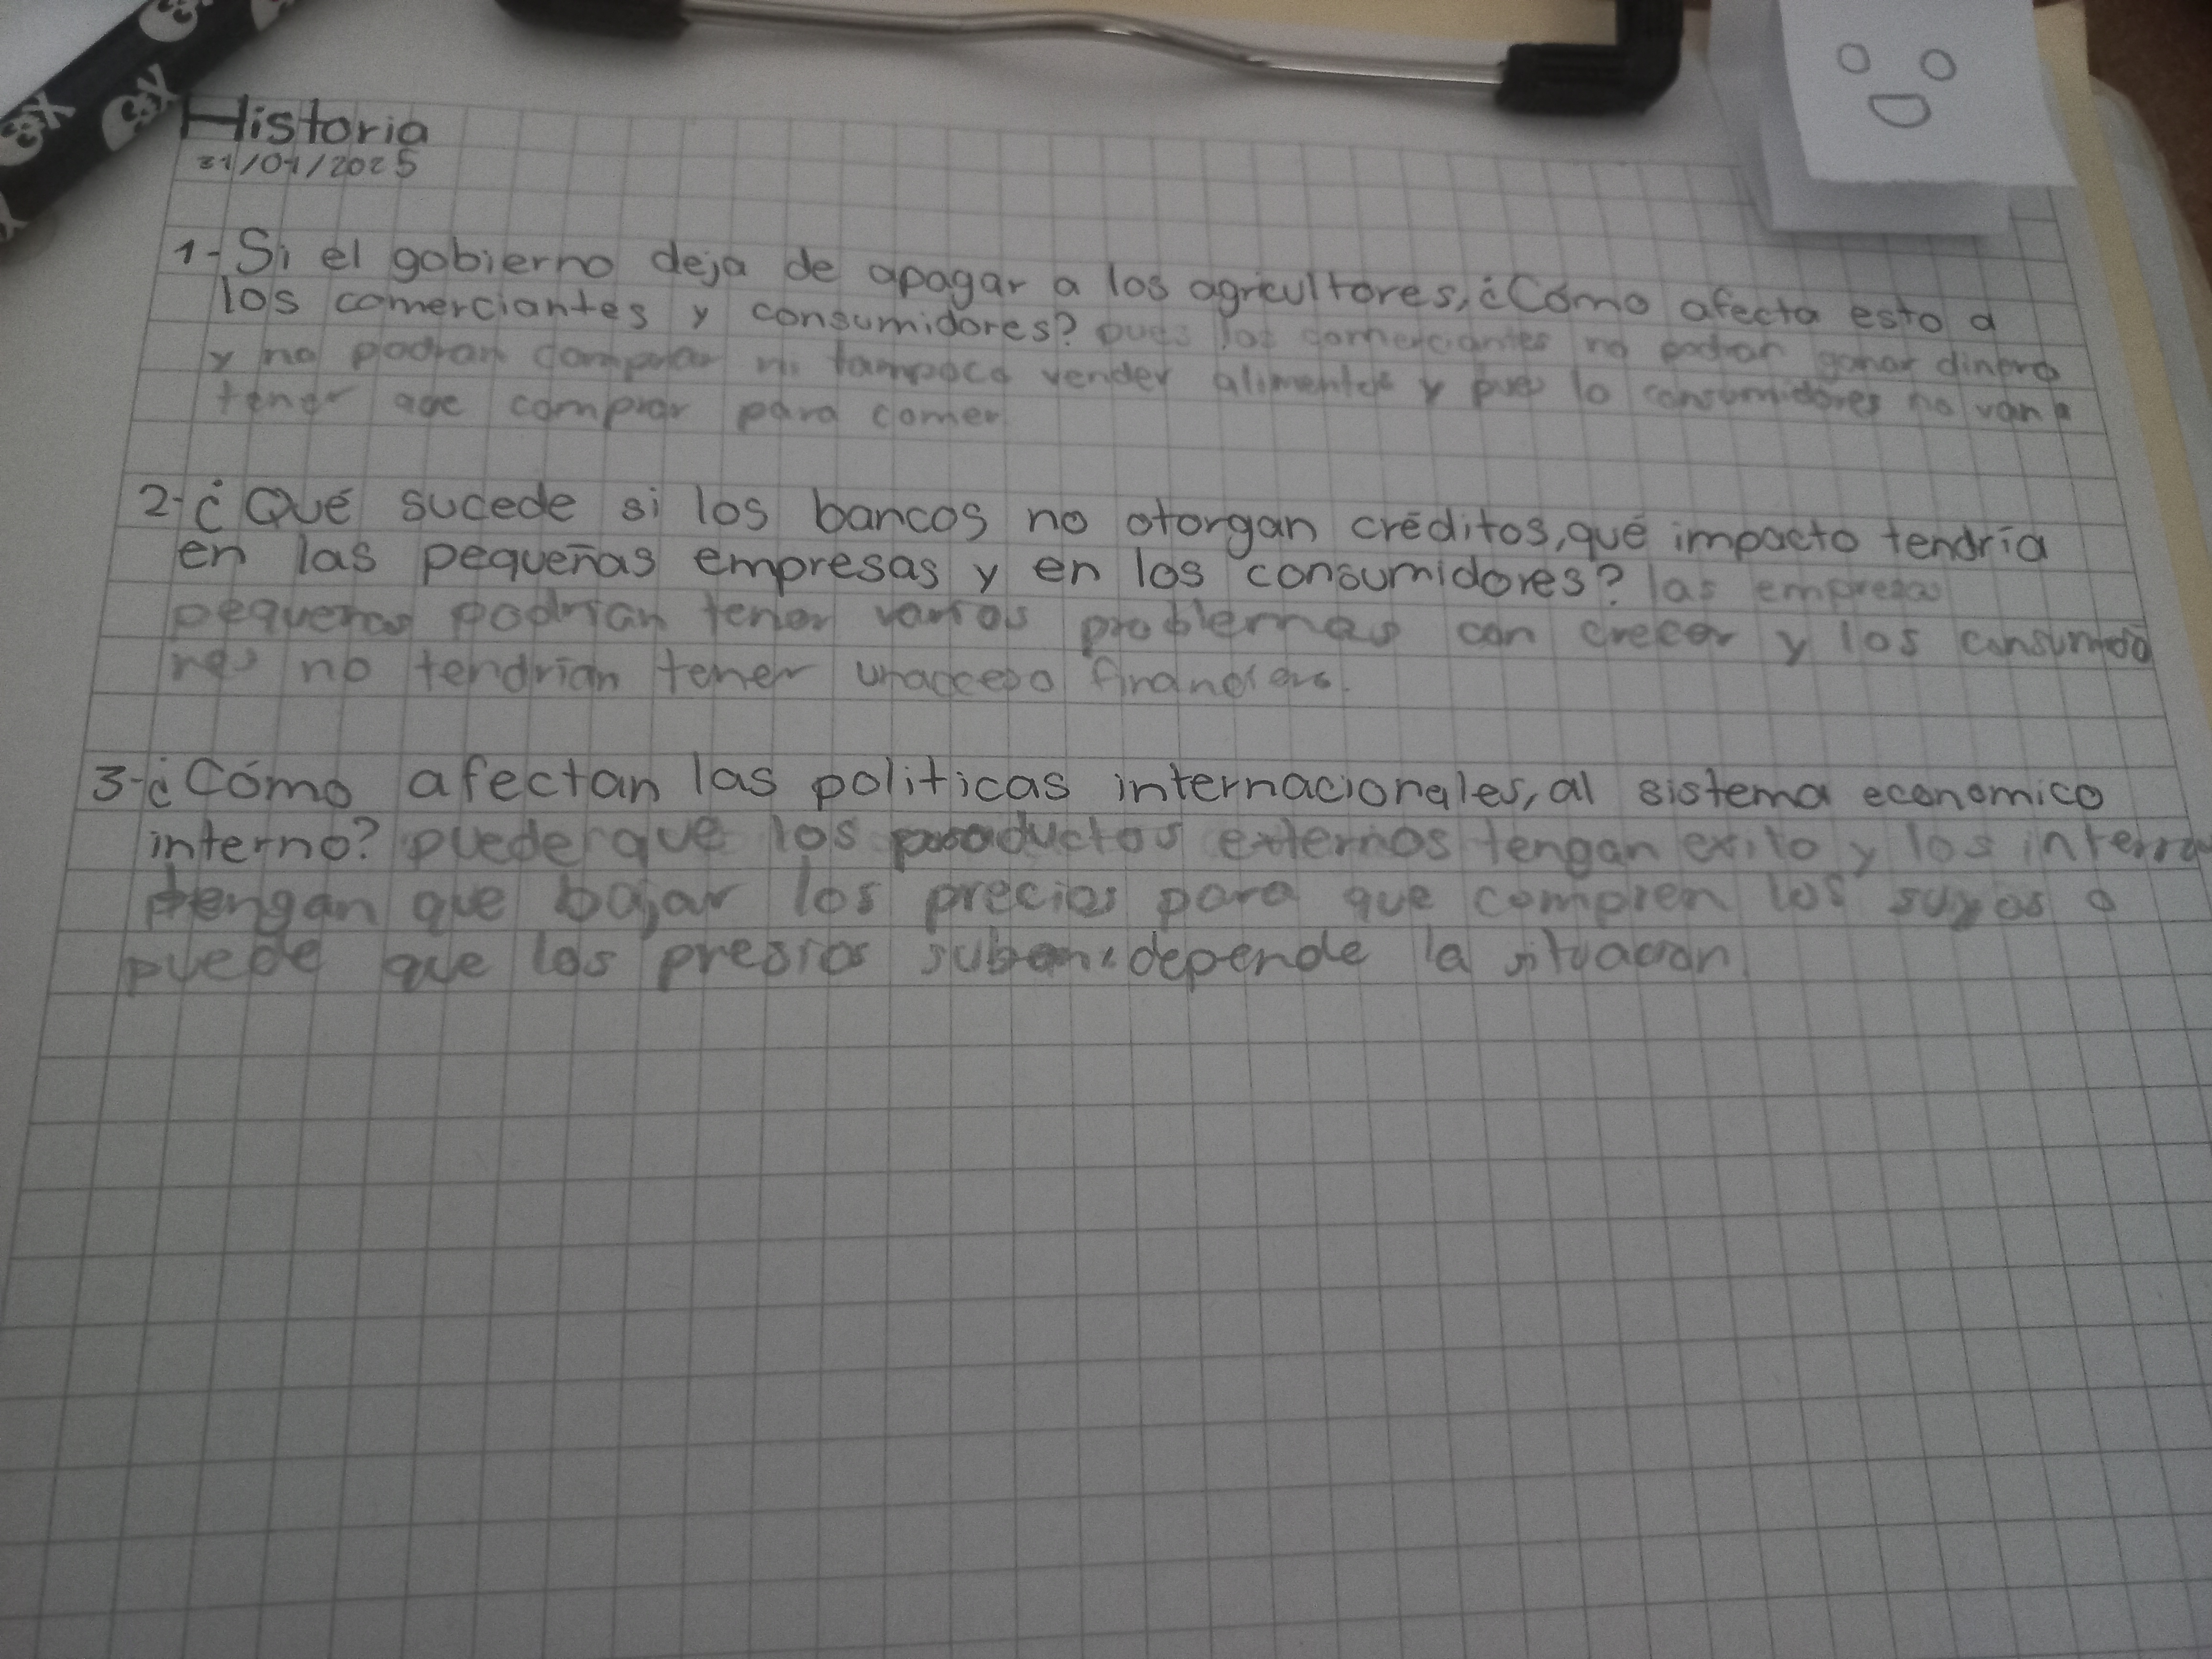 Historia
31/01/2025
1-Si el gobierno deja de apagar a los agricultores, ¿Cómo afecta esto a
los comerciantes y consumidores? pues los comerciantes no podran ganar dinero
y no podran comprar ni tampoco vender alimentos y pues lo consumidores no van a
tener que comprar para comer.
2-¿Qué sucede si los bancos no otorgan créditos, qué impacto tendría
en las pequeñas empresas y en los consumidores? las empresas
pequeñas podrian tener varios problemas con crecer y los consumido
res no tendrian tener un acceso financiero.
3-¿Cómo afectan las politicas internacionales, al sistema economico
interno? puede que los productos externos tengan exito y los internos
tengan que bajar los precios para que compren los suyos o
puede que los presios suban, depende la situacion